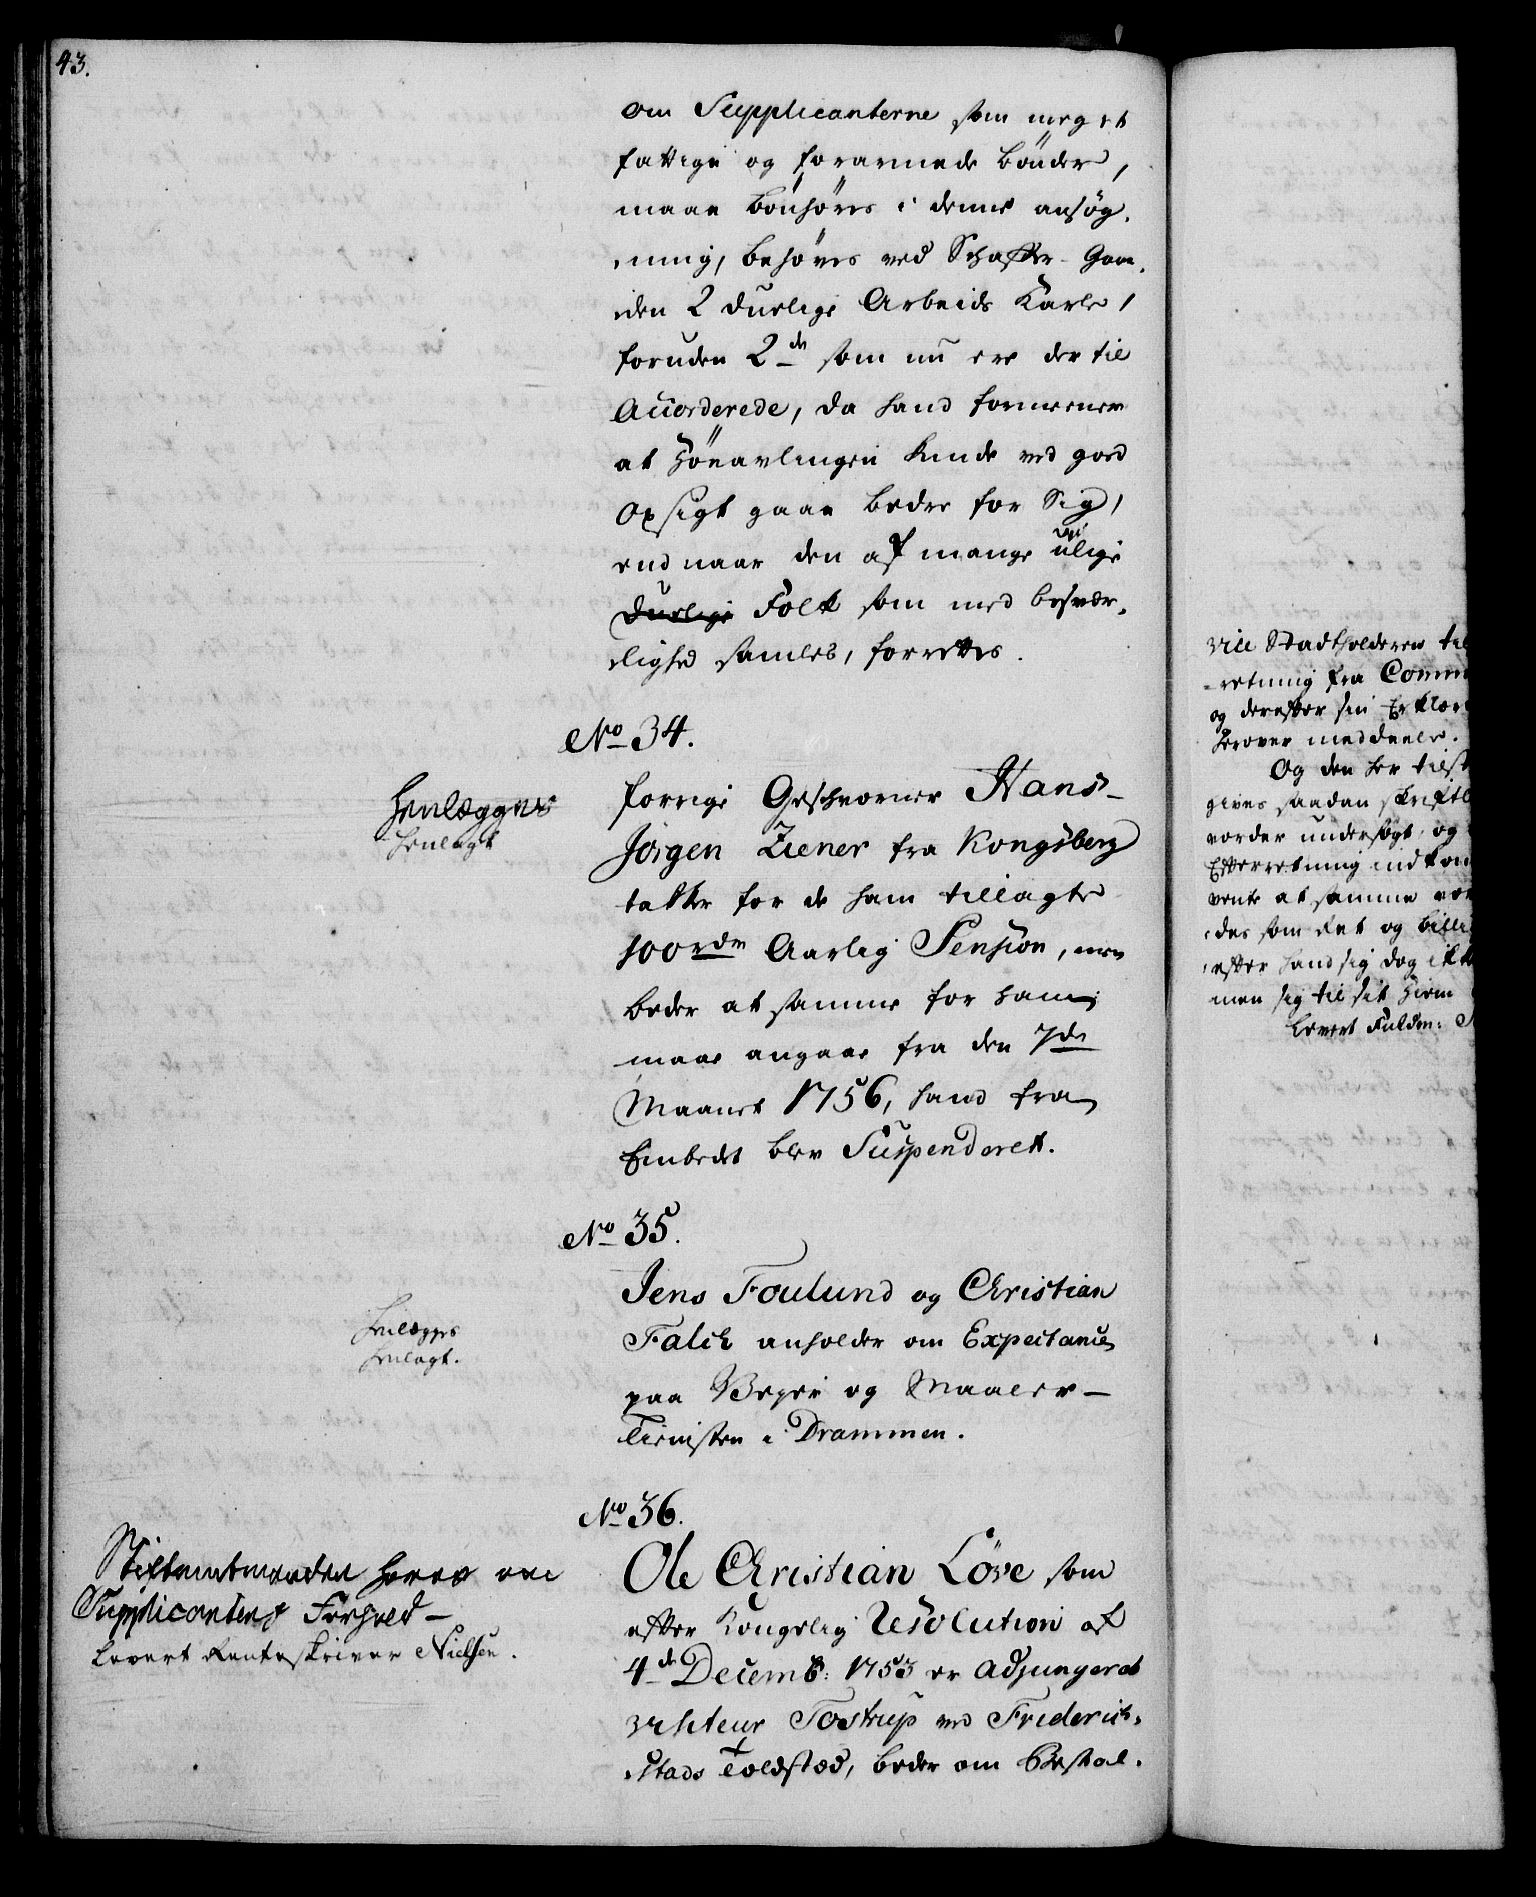 43.
om Supplicanterne som meget
fattige og forarmede bönder,
maae bönhöres i denne ansøg-
ning, behöves ved Schaffer-Gaar-
den 2 duelige Arbeids Karle,
foruden 2de som nu ere der til
Accorderede, da hand formeener
at Höeavlingen kunde ved god
Opsigt gaae bedre for Sig,
end naar den af mange ulige
duelige Folk som med besvær-
lighed samles, forrettes.
No 34.
Henlægges
Henlagt
forrige Geschworner Hans
Jørgen Ziener fra Kongsberg
takker for de ham tillagte
100 rdr Aarlig Pension, men
beder at samme for ham
maae angaae fra den 7de
Maanet 1756, hand fra
Embedet blev Suspenderet.
No 35.
Henlægges
Henlagt.
Jens Foulund og Christian
Falch anholder om Expectance
paa Veyer og Maaler-
Tienisten i Drammen.
No 36.
Stiftamtmanden høres om
Supplicantens Forhold
Levert Renteskriver Nielsen.
Ole Christian Löve som
efter Kongelig Resolution af
4de Decemb: 1753 er adjungeret
Visiteur Tostrup ved Friderich-
stads Toldsted, beder om Bestal-
vice Stadtholderen til
-retning fra Comm
og derefter sin Erklær
herover meddeele.
Og den her tilst
gives saadan skriftl
vorder undersøgt, og
Efterretning indkom
vente at samme vor
-des som Ret og billi
efter hand sig dog ikk
men sig til sit Hiem
Levert Fuldm: